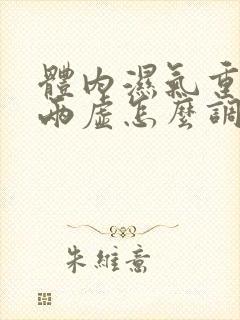 體內濕氣重
兩虛怎麼調
朱維意